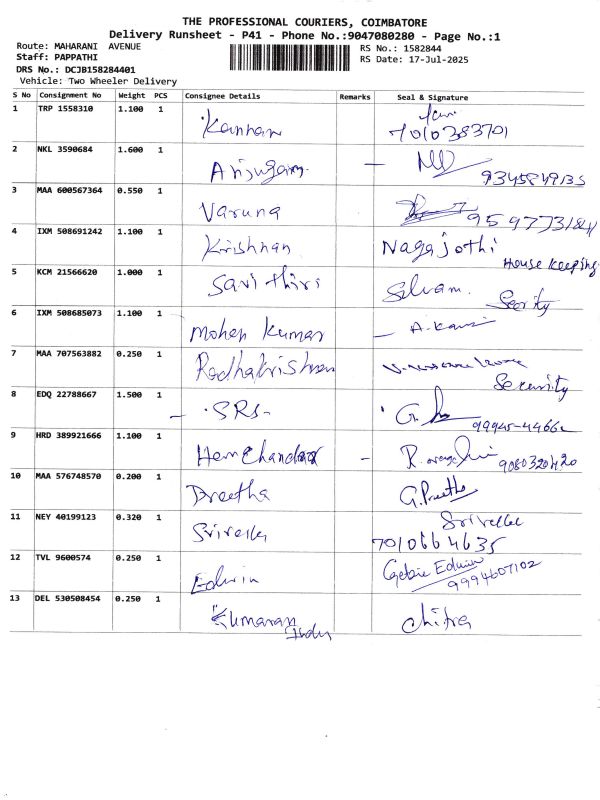 THE PROFESSIONAL COURIERS, COIMBATORE
Delivery Runsheet - P41 - Phone No.:9047080280 - Page No.:1
Route: MAHARANI AVENUE
RS No.: 1582844
Staff: PAPPATHI
RS Date: 17-Jul-2025
DRS No.: DCJB158284401
Vehicle: Two Wheeler Delivery
S No Consignment No Weight PCS Consignee Details Remarks Seal & Signature
1 TRP 1558310 1.100 1 Kannan 7010383701
2 NKL 3590684 1.600 1 - 9345849135
3 MAA 600567364 0.550 1 Varuna
4 IXM 508691242 1.100 1 Krishnan Nagajothi
House Keeping
5 KCM 21566620 1.000 1 Savithiri Selvam.
6 IXM 508685073 1.100 1 Mohan Kumar - A.
7 MAA 707563882 0.250 1 Radhakrishnan
Security
8 EDQ 22788667 1.500 1 - SRS-
9 HRD 389921666 1.100 1 Hemchandar - R. 9080320420
10 MAA 576748570 0.200 1 Preetha G.Preetha
11 NEY 40199123 0.320 1
7010664635
12 TVL 9600574 0.250 1 Edwin Edwin
9994607102
13 DEL 530508454 0.250 1 Kumaran Chitra